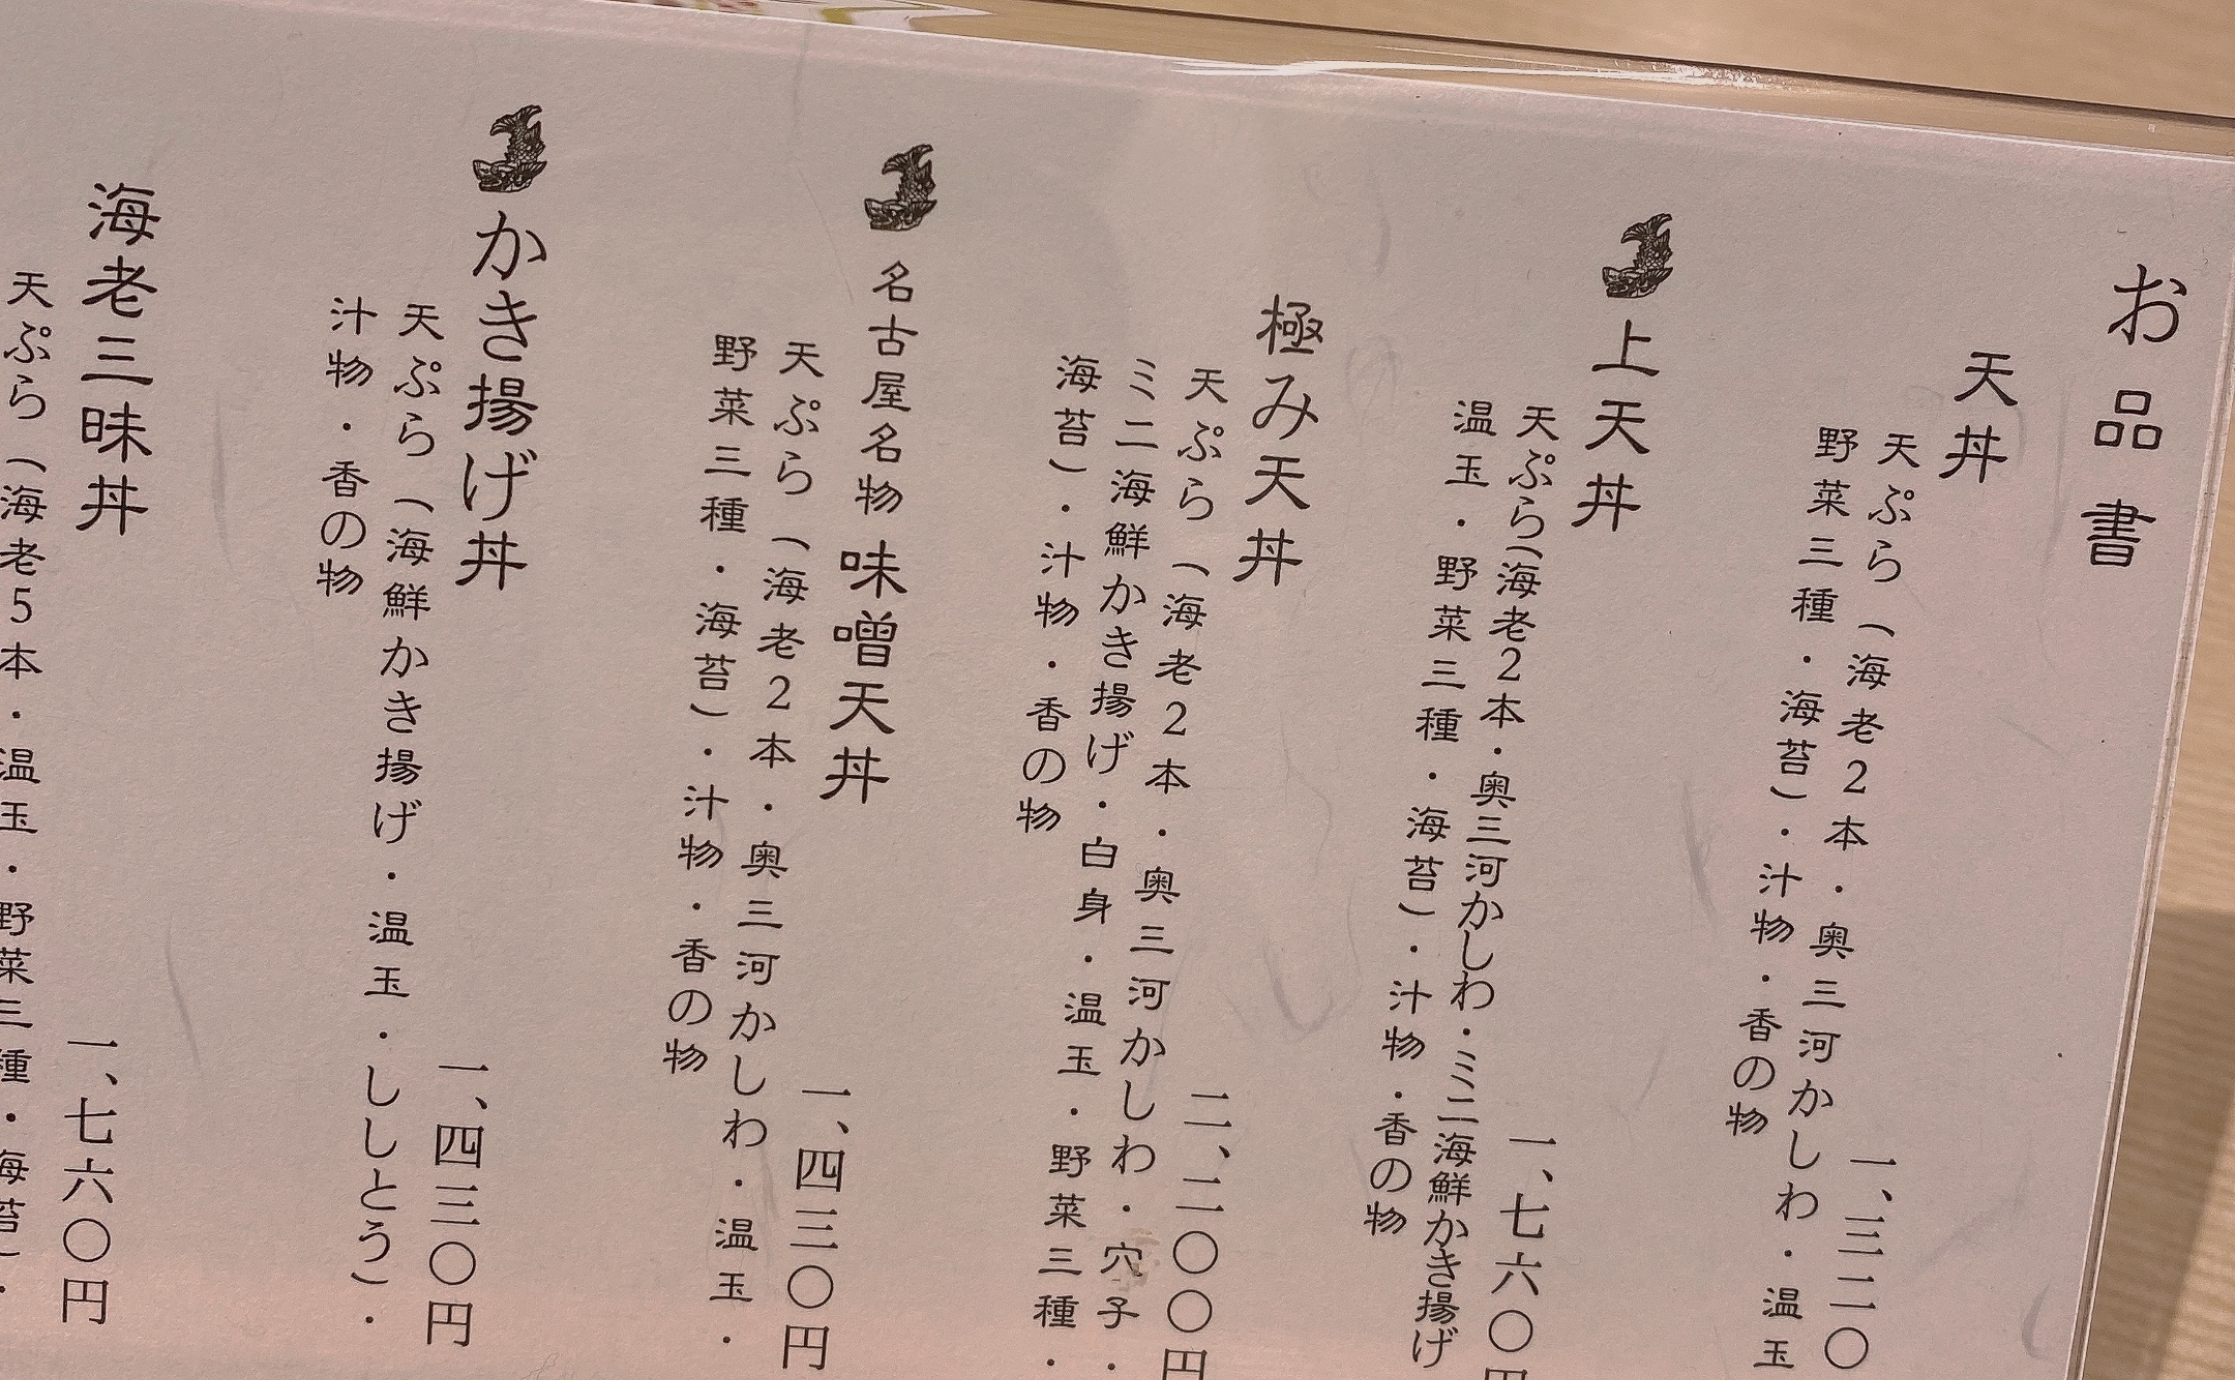 お品書
天丼
一、三二〇
天ぷら（海老2本・奥三河かしわ・温玉
野菜三種・海苔）・汁物・香の物
上天丼
一、七六〇円
天ぷら（海老2本・奥三河かしわ・ミニ海鮮かき揚げ
温玉・野菜三種・海苔）・汁物・香の物
極み天丼
二、二〇〇円
天ぷら（海老2本・奥三河かしわ・穴子・
ミニ海鮮かき揚げ・白身・温玉・野菜三種・
海苔）・汁物・香の物
名古屋名物 味噌天丼
一、四三〇円
天ぷら（海老2本・奥三河かしわ・温玉・
野菜三種・海苔）・汁物・香の物
かき揚げ丼
一、四三〇円
天ぷら（海鮮かき揚げ・温玉・ししとう）・
汁物・香の物
海老三昧丼
一、七六〇円
天ぷら（海老5本・温玉・野菜三種・海苔）・